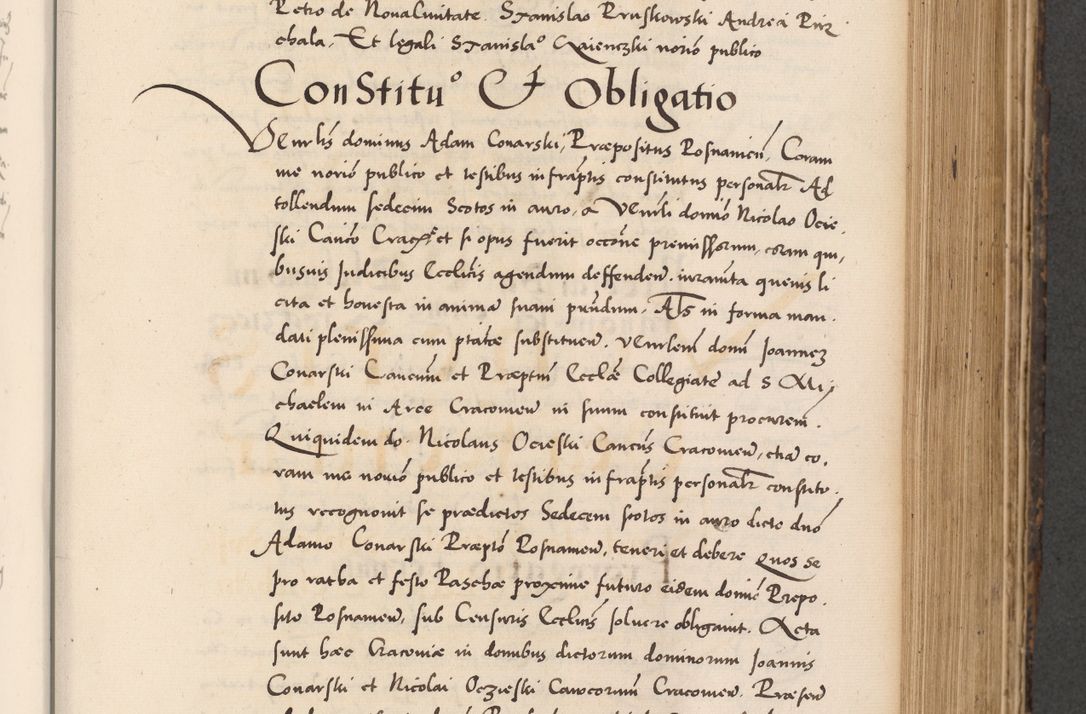 Petro de NovaCivitate. Stanislao Pruskowski Andrea Pirz
chala. Et legali Stanislao Gaienczki norio publico
ConStitu° Et Obligatio
Venrlis dominus Adam Conarski, Præpositus Posnanien, Coram
me norio publico et testibus infraptis constitutus personalr Ad
tollendum sedecim Scotos in auro, a Venrli domio Nicolao Ocie
ski Canco Crac et si opus fuerit occone premissorum, coram qui,
busuis Judicibus Ecclicis agendum deffenden. iuramta quevis li
cita et honesta in animam suam prndum. Als in forma man.
dati plenissima cum ptate substituen. Venrlem domi Joannez
Conarski Cancum et Præptm Ecclæ Collegiate ad S Mi,
chaelem in Arce Cracovien in suum constituit procurem.
Quiquidem do. Nicolaus Ocieski Cancus Cracovien, etia co,
ram me norio publico et testibus infraptis personalr constitu.
tus recognovit se prædictos Sedecem scotos in auro dicto dno
Adamo Conarski Præpto Posnanien, teneri et debere Quos se
pro ratba et festo Paschæ proxime futuro eidem domio Prepo.
sito Posnanien, sub Censuris Ecclicis soluere obligauit. Acta
sunt hæc Cracoviæ in domibus dictorum dominorum Joannis
Conarski et Nicolai Oczieski Canocorum Cracovien. Præsen